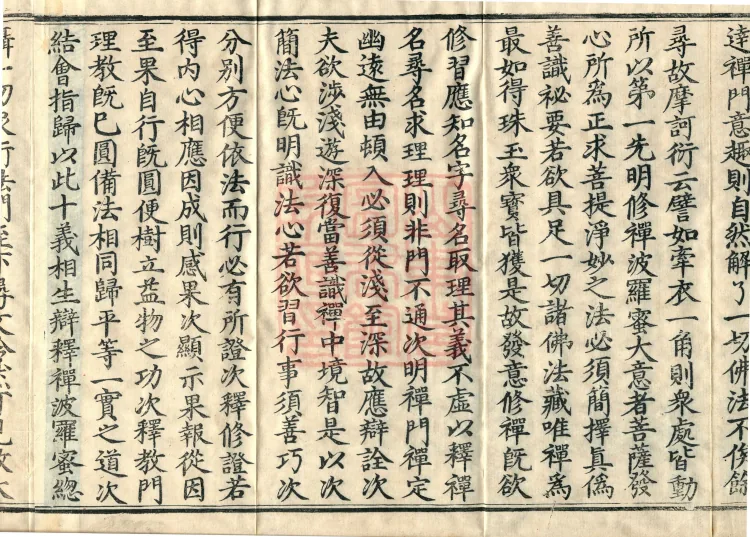 達禪門意趣則自然解了一切佛法不俟餘
尋故摩訶衍云譬如牽衣一角則衆處皆動
所以第一先明修禪波羅蜜大意者菩薩發
心所為正求菩提淨妙之法必須簡擇真偽
善識祕要若欲具足一切諸佛法藏唯禪為
最如得珠玉衆寶皆獲是故發意修禪既欲
修習應知名字尋名取理其義不虛以釋禪
名尋名求理理則非門不通次明禪門禪定
幽遠無由頓入必須從淺至深故應辯詮次
夫欲涉淺遊深復當善識禪中境智是以次
簡法心既明識法心若欲習行事須善巧次
分別方便依法而行必有所證次釋修證若
得內心相應因成則感果次顯示果報從因
至果自行既圓便樹立益物之功次釋教門
理教既已圓備法相同歸平等一實之道次
結會指歸以此十義相生辯釋禪波羅蜜總
攝一切衆行法門